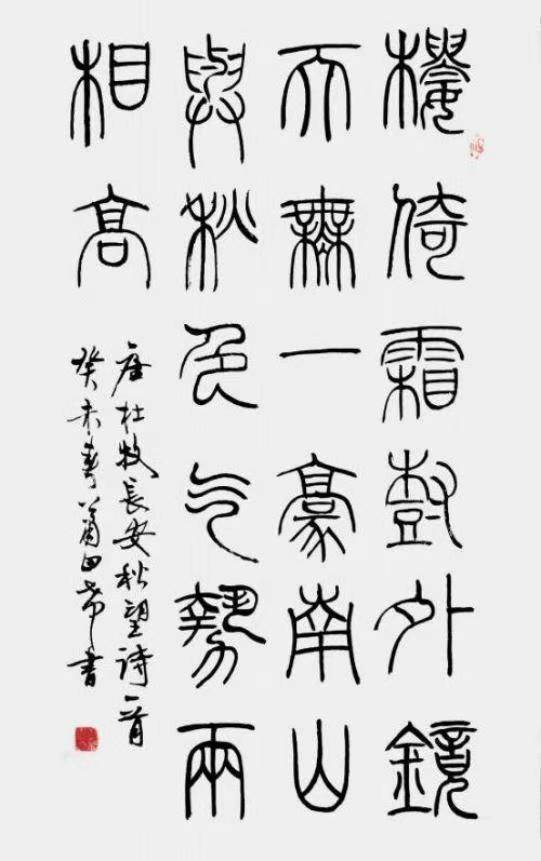 樓倚霜尌外鏡
天無一豪南山
與秋色气勢兩
相高
唐杜牧長安秋望詩一首
癸未春莆田書